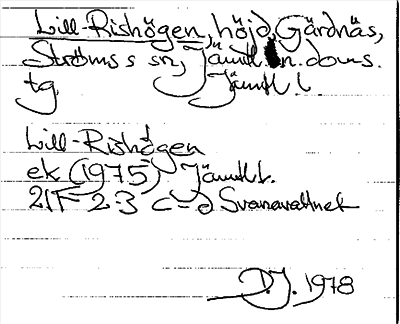 Lill-Rishögen, höjd, Gärdnäs,
Ströms s sn, Jämtl. n. doms.
tg Jämtl. l.
Lill-Rishögen
ek (1975) Jämtl l.
21F 2-3 c-d Svanavattnet
D.J. 1978